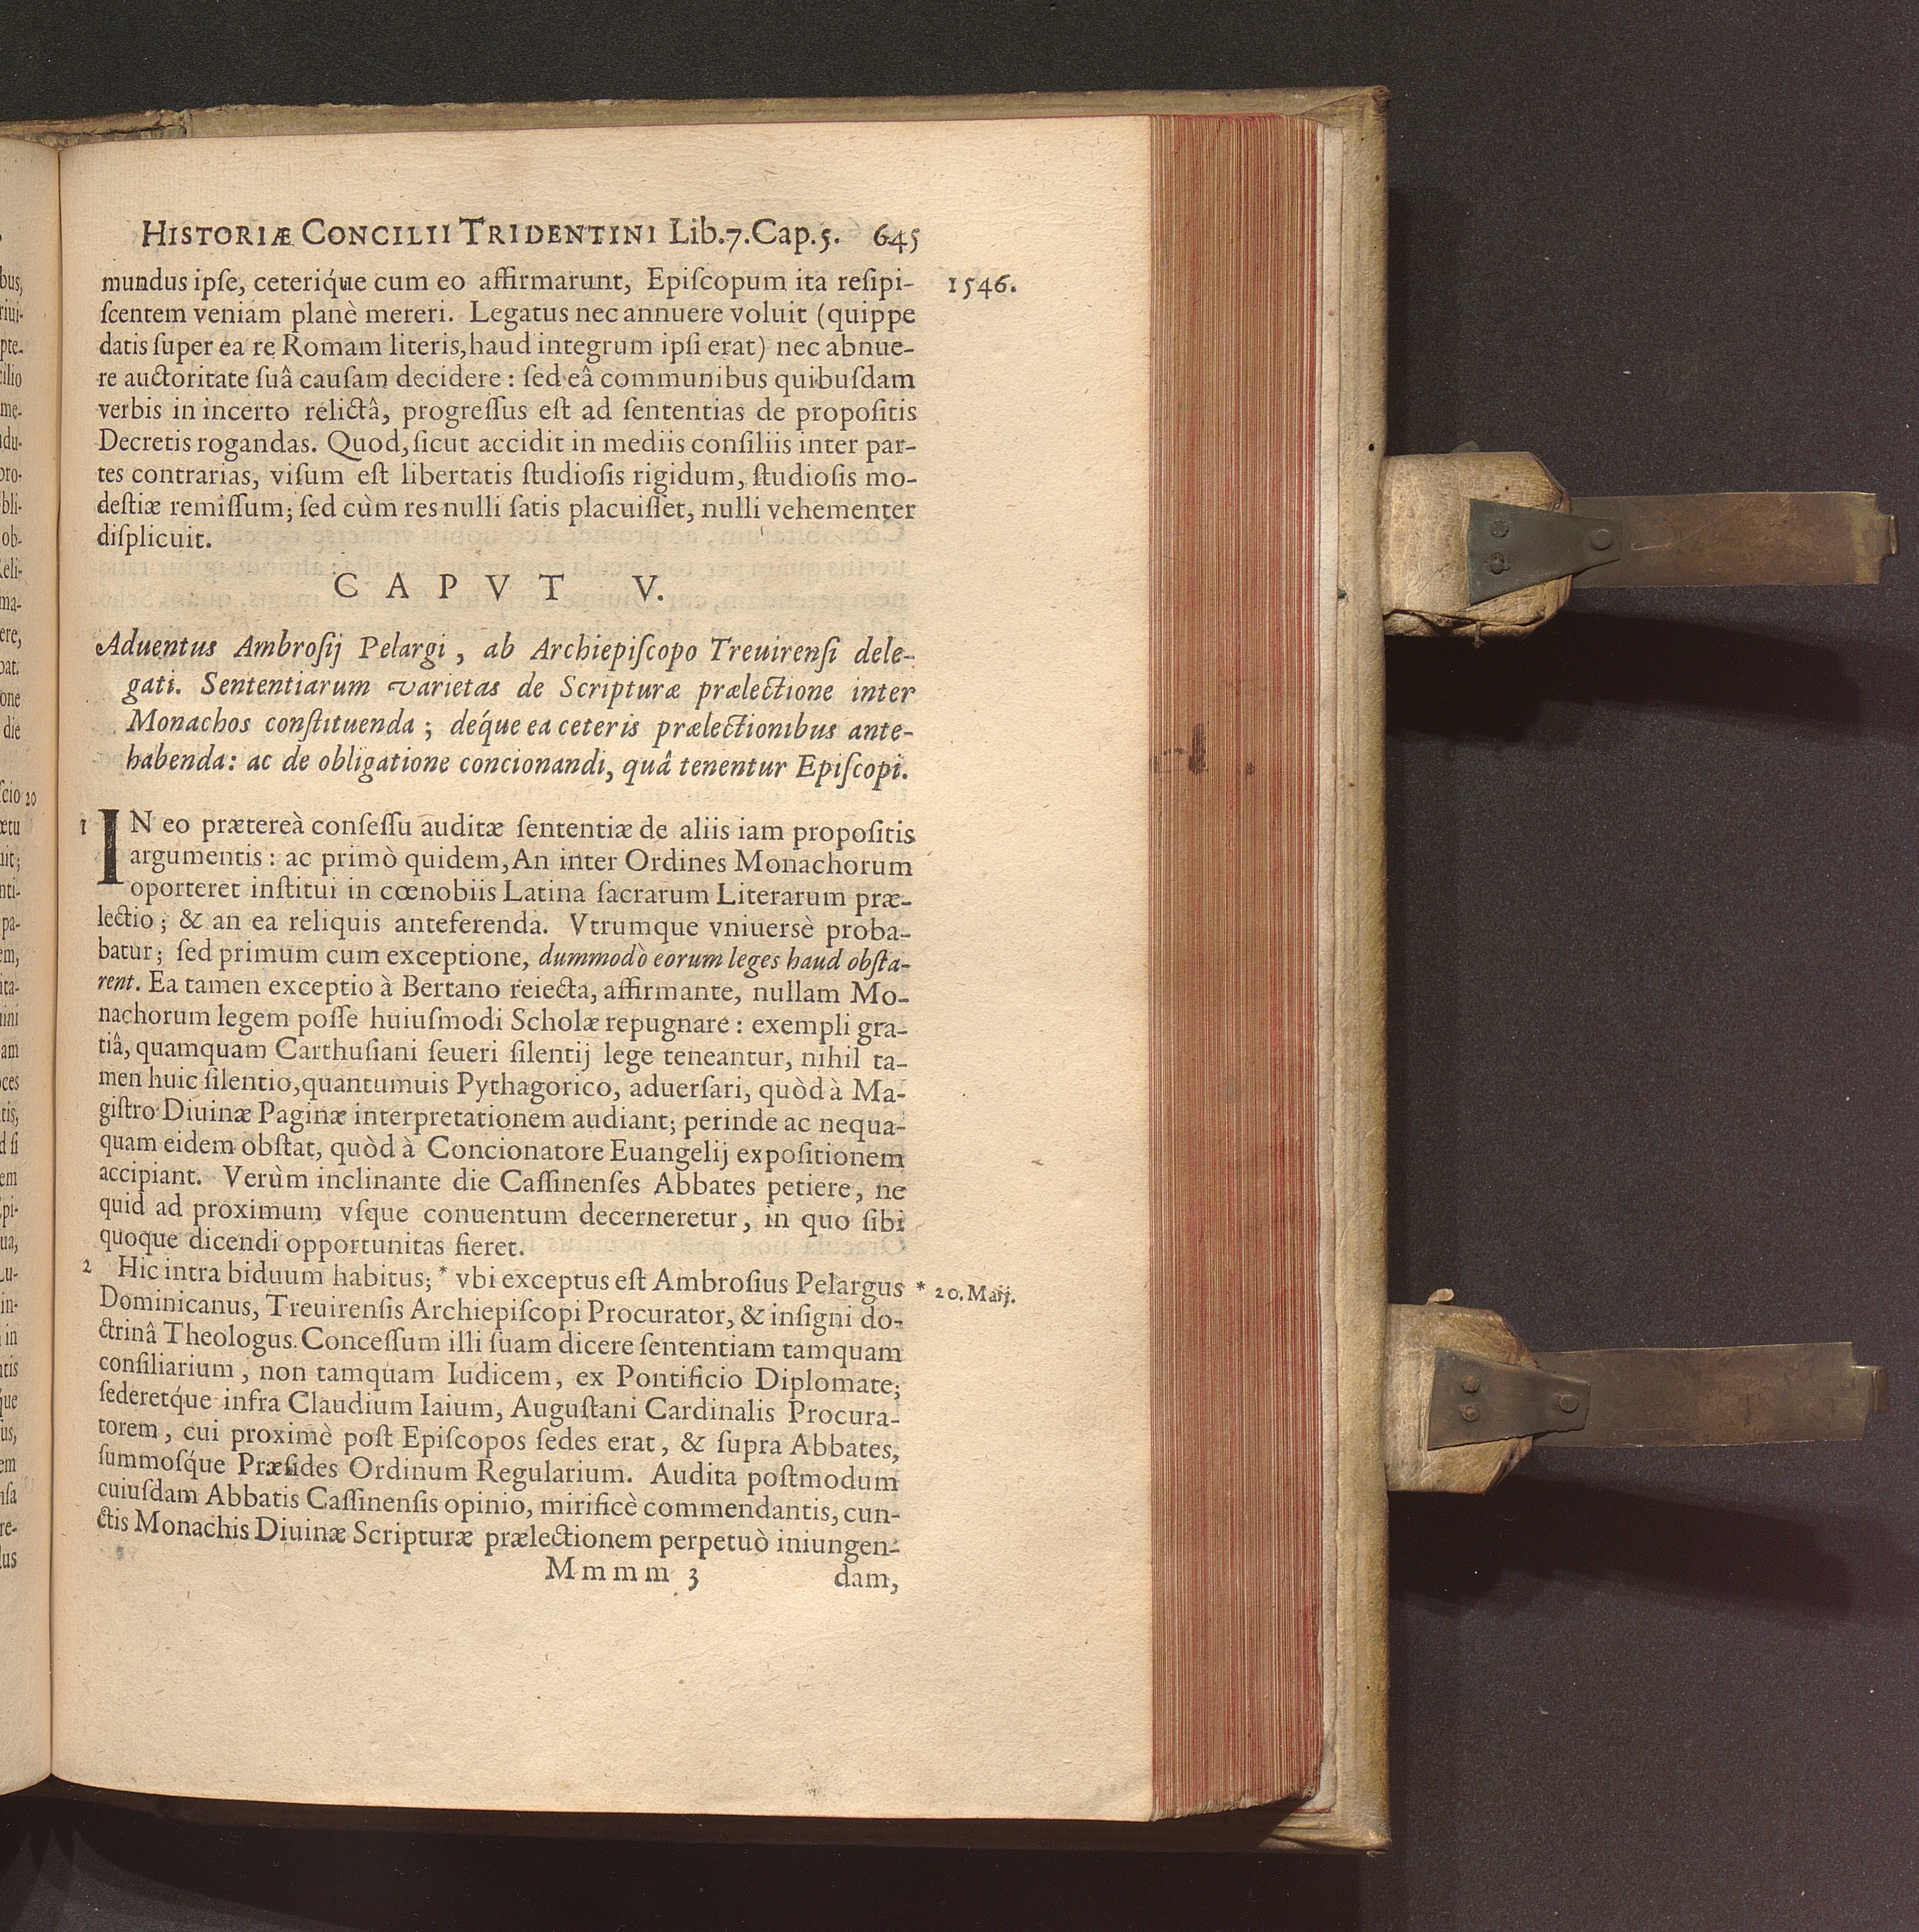 HISTORIÆ CONCILII TRIDENTINI Lib.7.Cap.5. 645
mundus ipſe, ceteriq́ue cum eo affirmarunt, Epiſcopum ita reſipi- 1546.
ſcentem veniam planè mereri. Legatus nec annuere voluit (quippe
datis ſuper ea re Romam literis, haud integrum ipſi erat) nec abnue-
re auctoritate ſuâ cauſam decidere : ſed eâ communibus quibuſdam
verbis in incerto relictâ, progreſſus eſt ad ſententias de propoſitis
Decretis rogandas. Quod, ſicut accidit in mediis conſiliis inter par-
tes contrarias, viſum eſt libertatis ſtudioſis rigidum, ſtudioſis mo-
deſtiæ remiſſum; ſed cùm res nulli ſatis placuiſſet, nulli vehementer
diſplicuit.
CAPVT V.
Aduentus Ambroſij Pelargi, ab Archiepiſcopo Treuirenſi dele-
gati. Sententiarum varietas de Scripturæ prælectione inter
Monachos conſtituenda ; déque ea ceteris prælectionibus ante-
habenda: ac de obligatione concionandi, quâ tenentur Epiſcopi.
1 IN eo prætereà conſeſſu auditæ ſententiæ de aliis iam propoſitis
argumentis : ac primò quidem, An inter Ordines Monachorum
oporteret inſtitui in cœnobiis Latina ſacrarum Literarum præ-
lectio ; & an ea reliquis anteferenda. Vtrumque vniuersè proba-
batur ; ſed primum cum exceptione, dummodò eorum leges haud obſta-
rent. Ea tamen exceptio à Bertano reiecta, affirmante, nullam Mo-
nachorum legem poſſe huiuſmodi Scholæ repugnare : exempli gra-
tiâ, quamquam Carthuſiani ſeueri ſilentij lege teneantur, nihil ta-
men huic ſilentio, quantumuis Pythagorico, aduerſari, quòd à Ma-
giſtro Diuinæ Paginæ interpretationem audiant; perinde ac nequa-
quam eidem obſtat, quòd à Concionatore Euangelij expoſitionem
accipiant. Verùm inclinante die Caſſinenſes Abbates petiere, ne
quid ad proximum vſque conuentum decerneretur, in quo ſibi
quoque dicendi opportunitas fieret.
2 Hic intra biduum habitus; * vbi exceptus eſt Ambroſius Pelargus * 20. Maij.
Dominicanus, Treuirenſis Archiepiſcopi Procurator, & inſigni do-
ctrinâ Theologus. Conceſſum illi ſuam dicere ſententiam tamquam
conſiliarium, non tamquam Iudicem, ex Pontificio Diplomate;
ſederetq́ue infra Claudium Iaium, Auguſtani Cardinalis Procura-
torem, cui proximè poſt Epiſcopos ſedes erat, & ſupra Abbates,
ſummoſq́ue Præſides Ordinum Regularium. Audita poſtmodum
cuiuſdam Abbatis Caſſinenſis opinio, mirificè commendantis, cun-
ctis Monachis Diuinæ Scripturæ prælectionem perpetuò iniungen-
Mmmm 3 dam,